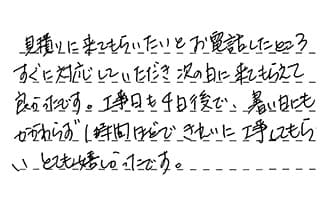 見積りに来てもらいたいとお電話したところ
すぐに対応していただき次の日に来てもらえて
良かったです。工事日も4日後で、暑い日にも
かかわらず1時間ほどできれいに工事してもら
いとても嬉しかったです。